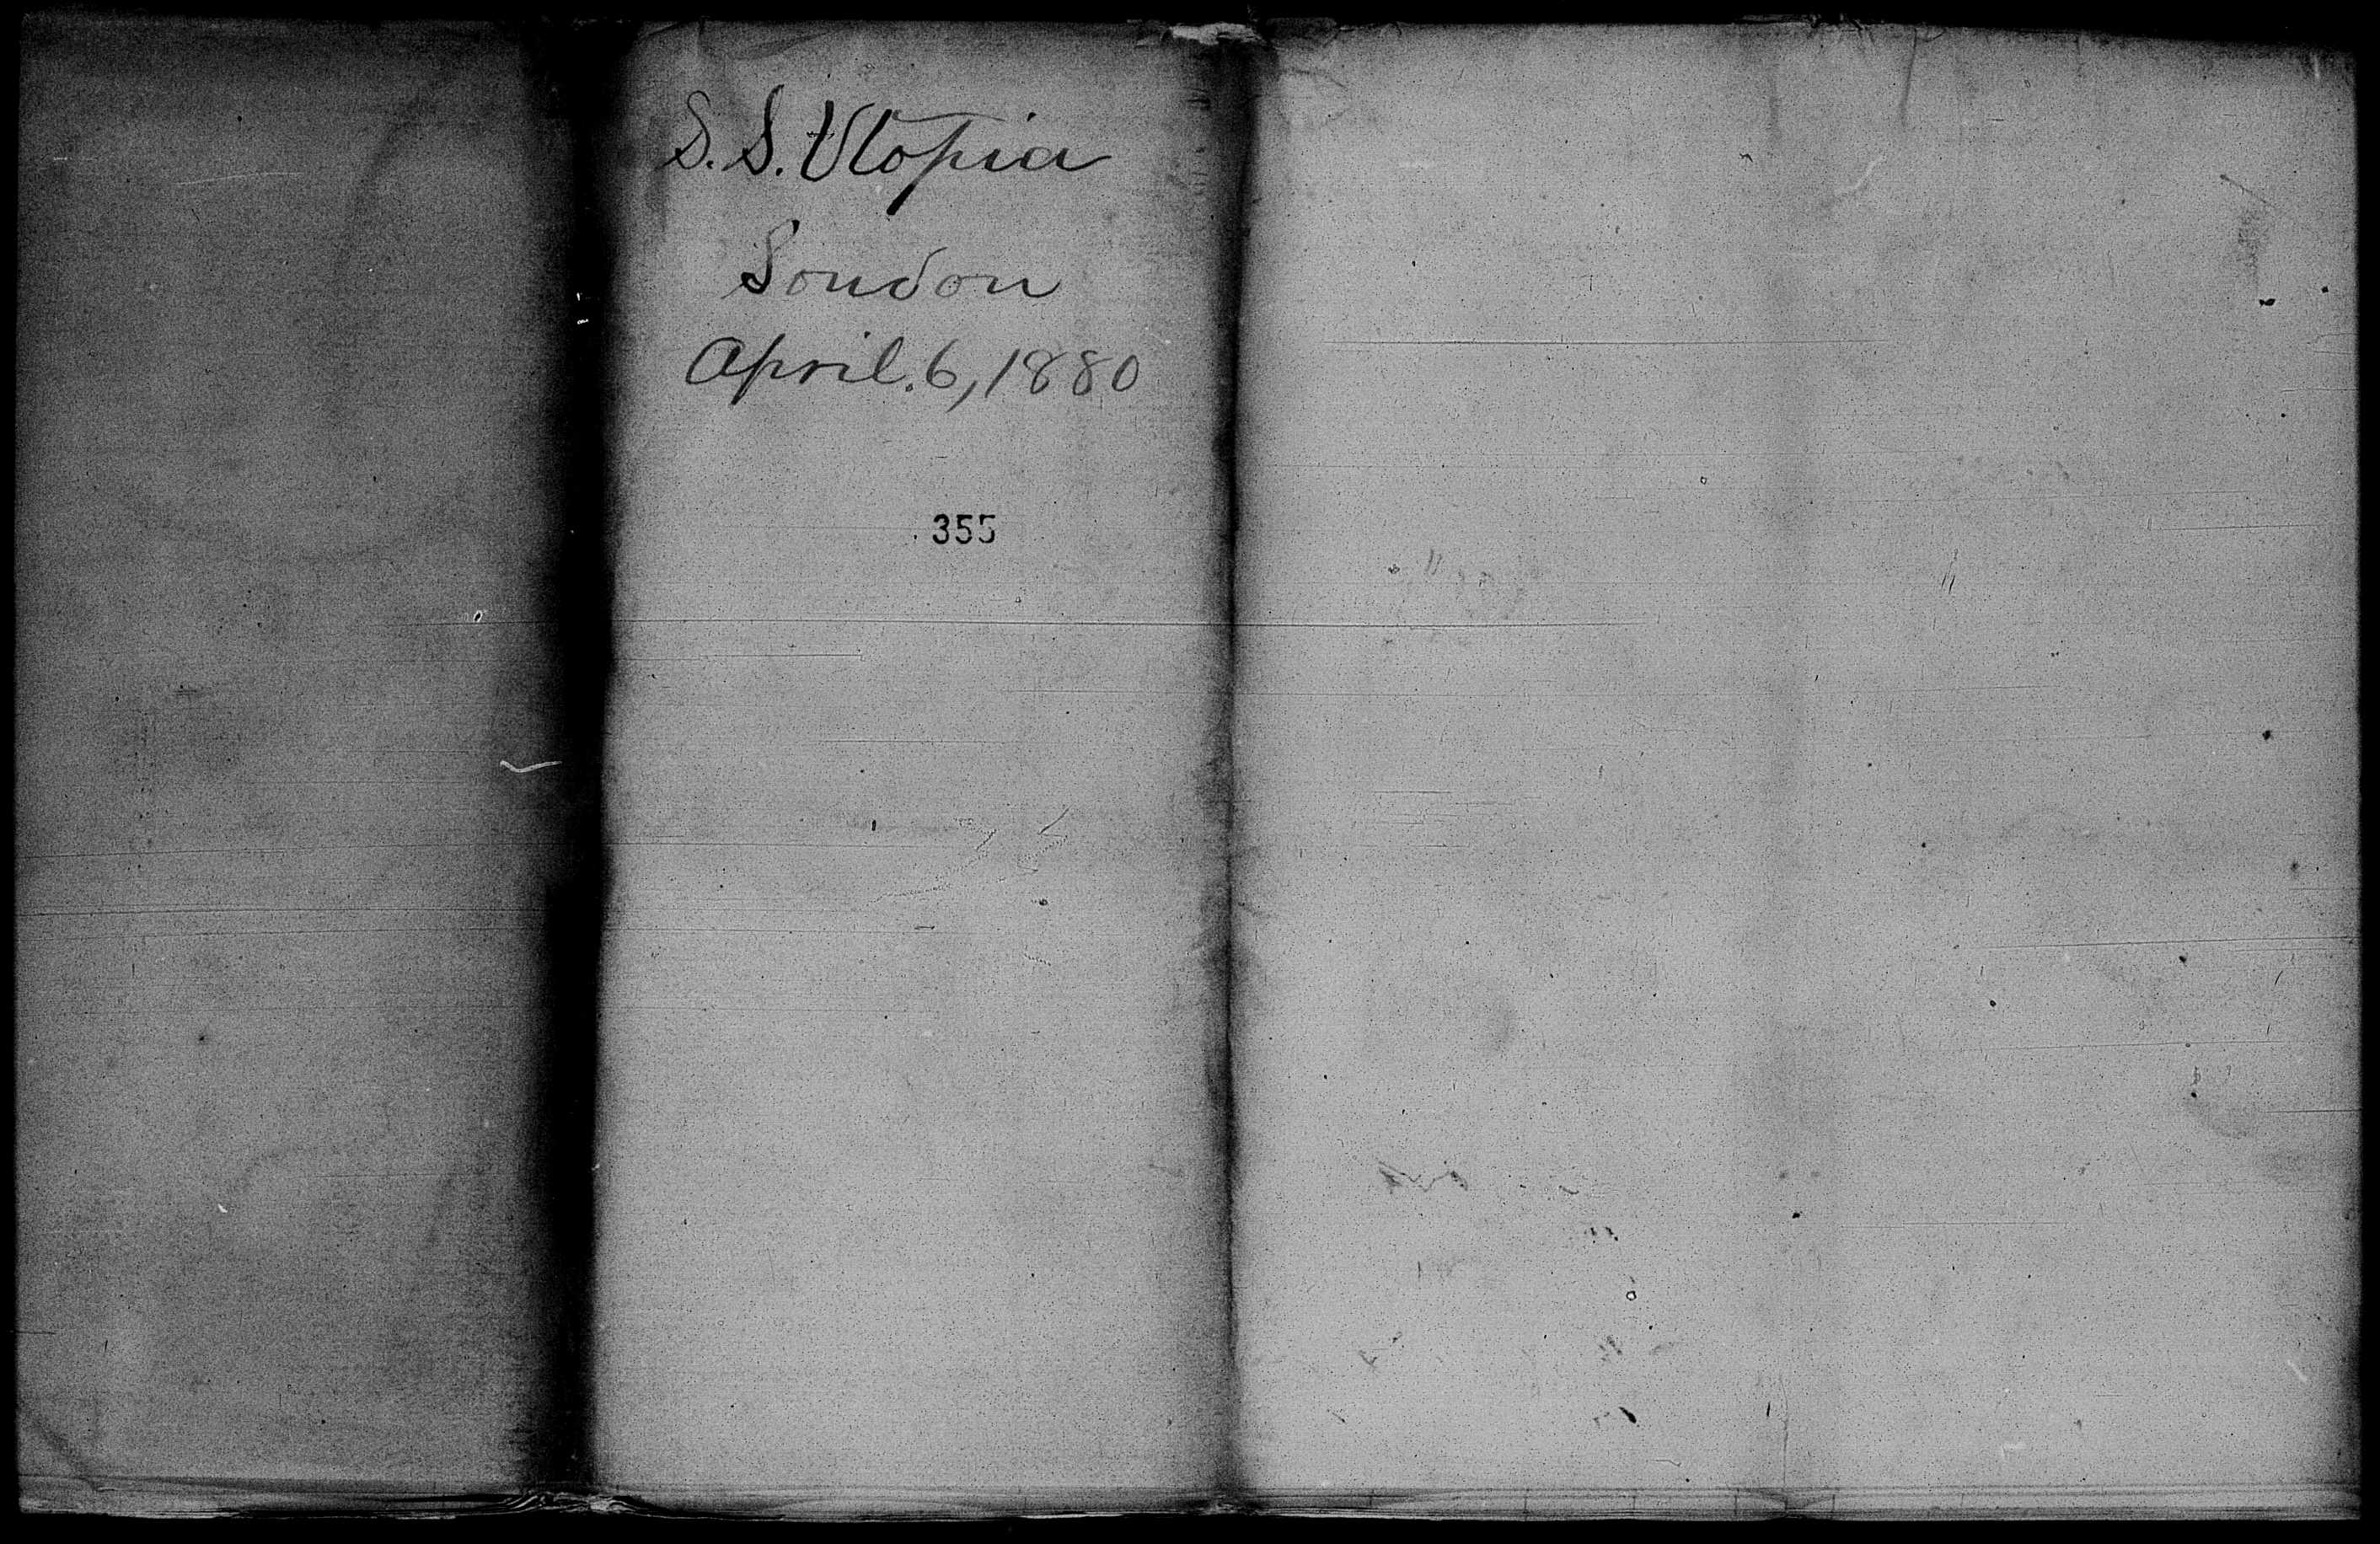 S. S. Utopia
London
April. 6, 1880
355